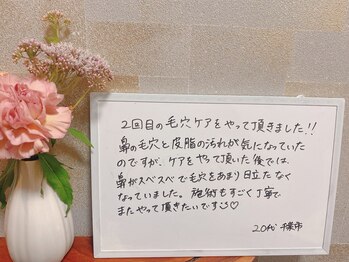 2回目の毛穴ケアをやって頂きました!!
鼻の毛穴と皮脂の汚れが気になっていた
のですが、ケアをやって頂いた後では、
鼻がスベスベで毛穴をあまり目立たなく
なっていました。施術もすごく丁寧で
またやって頂きたいです♡
20代 千葉市